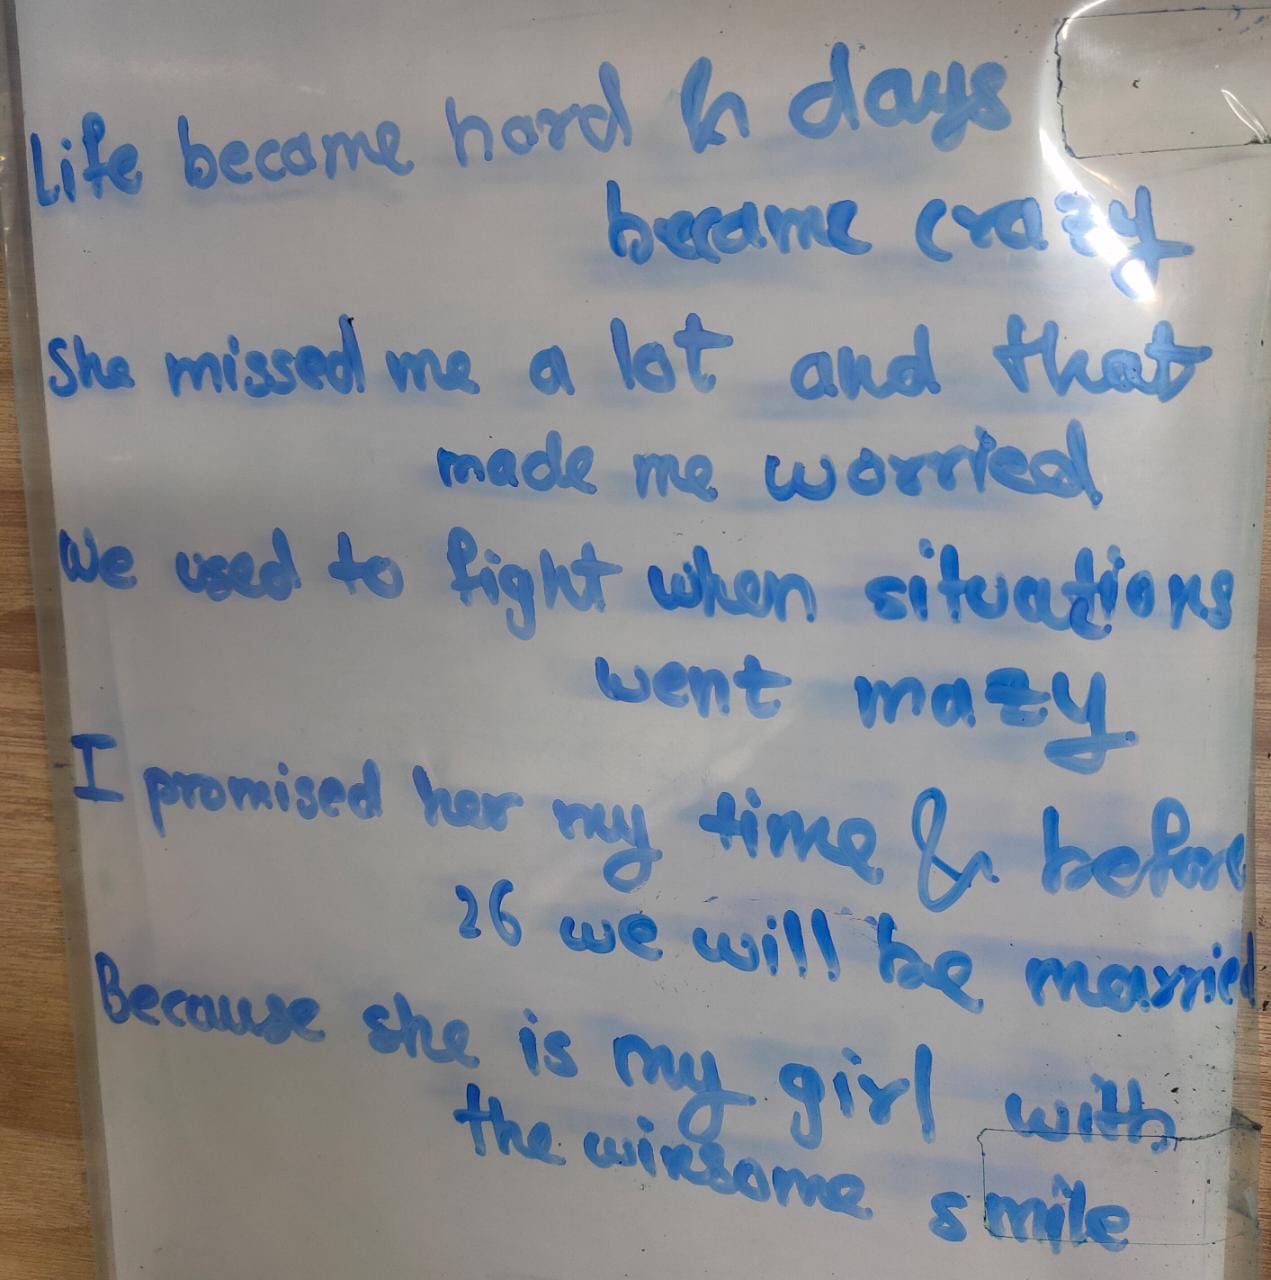 Life become hard & days
became crazy
She missed me a lot and that
made me worried
We used to fight when situations
went mazy
I promised her my time & before
26 we will be married
Because she is my girl with
the winsome smile